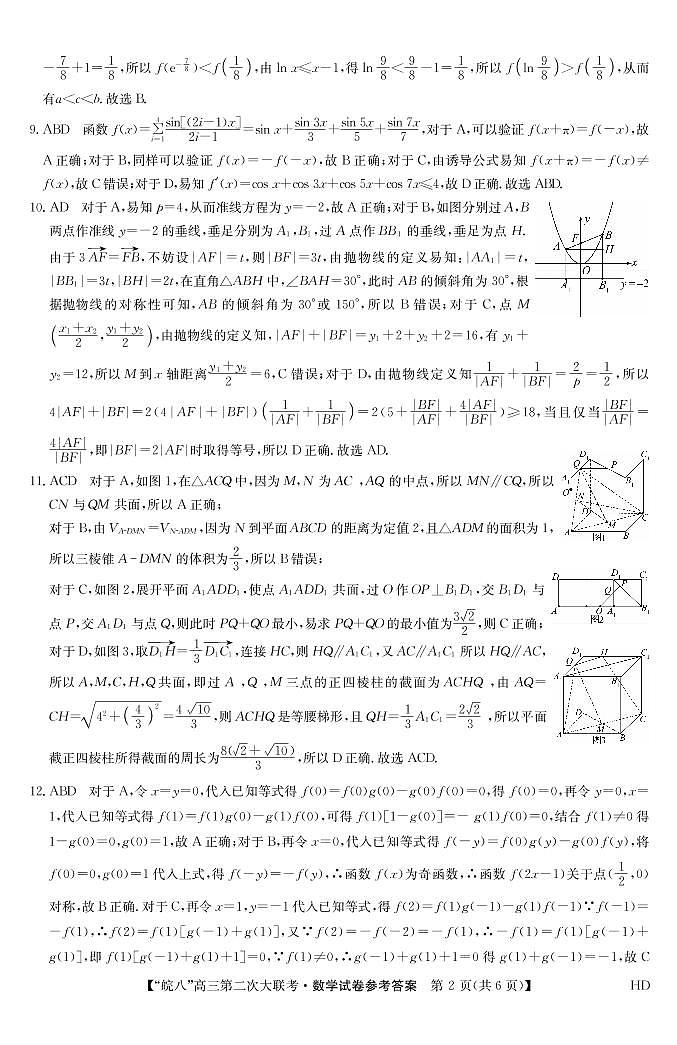 -7/8+1=1/8,所以 f(e^{-7/8})<f(1/8),由 ln x≤x-1,得 ln 9/8<9/8-1=1/8,所以 f(ln 9/8)>f(1/8),从而
有a<c<b. 故选 B.
9. ABD 函数 f(x)=∑_{i=1}^{4} sin[(2i-1)x]/(2i-1)=sin x+sin 3x/3+sin 5x/5+sin 7x/7,对于 A,可以验证 f(x+π)=f(-x),故
A 正确;对于 B,同样可以验证 f(x)=-f(-x),故 B 正确;对于 C,由诱导公式易知 f(x+π)=-f(x)≠
f(x),故 C 错误;对于 D,易知 f′(x)=cos x+cos 3x+cos 5x+cos 7x≤4,故 D 正确. 故选 ABD.
10. AD 对于 A,易知 p=4,从而准线方程为 y=-2,故 A 正确;对于 B,如图分别过 A,B
两点作准线 y=-2 的垂线,垂足分别为 A₁,B₁,过 A 点作 BB₁ 的垂线,垂足为点 H.
由于 3AF→=FB→,不妨设|AF|=t,则|BF|=3t,由抛物线的定义易知:|AA₁|=t,
|BB₁|=3t,|BH|=2t,在直角△ABH 中,∠BAH=30°,此时 AB 的倾斜角为 30°,根
据抛物线的对称性可知,AB 的倾斜角为 30°或 150°,所以 B 错误;对于 C,点 M
((x₁+x₂)/2,(y₁+y₂)/2),由抛物线的定义知,|AF|+|BF|=y₁+2+y₂+2=16,有 y₁+
y₂=12,所以 M 到 x 轴距离(y₁+y₂)/2=6,C 错误;对于 D,由抛物线定义知1/|AF|+1/|BF|=2/p=1/2,所以
4|AF|+|BF|=2(4|AF|+|BF|)(1/|AF|+1/|BF|)=2(5+|BF|/|AF|+4|AF|/|BF|)≥18,当且仅当|BF|/|AF|=
4|AF|/|BF|,即|BF|=2|AF|时取得等号,所以 D 正确. 故选 AD.
y
F
B
A
H
O
x
A₁
B₁
y=-2
11. ACD 对于 A,如图 1,在△ACQ 中,因为 M,N 为 AC,AQ 的中点,所以 MN∥CQ,所以
CN 与 QM 共面,所以 A 正确;
对于 B,由 V_{A-DMN}=V_{N-ADM},因为 N 到平面 ABCD 的距离为定值 2,且△ADM 的面积为 1,
所以三棱锥 A-DMN 的体积为2/3,所以 B 错误;
对于 C,如图 2,展开平面 A₁ADD₁,使点 A₁ADD₁ 共面,过 O 作 OP⊥B₁D₁,交 B₁D₁ 与
点 P,交 A₁D₁ 与点 Q,则此时 PQ+QO 最小,易求 PQ+QO 的最小值为3√2/2,则 C 正确;
对于 D,如图 3,取D₁H→=1/3 D₁C₁→,连接 HC,则 HQ∥A₁C₁,又 AC∥A₁C₁ 所以 HQ∥AC,
所以 A,M,C,H,Q 共面,即过 A ,Q ,M 三点的正四棱柱的截面为 ACHQ ,由 AQ=
CH=√(4²+(4/3)²)=4√10/3,则 ACHQ 是等腰梯形,且 QH=1/3 A₁C₁=2√2/3 ,所以平面
截正四棱柱所得截面的周长为8(√2+√10)/3,所以 D 正确. 故选 ACD.
图1
图2
图3
12. ABD 对于 A,令 x=y=0,代入已知等式得 f(0)=f(0)g(0)-g(0)f(0)=0,得 f(0)=0,再令 y=0,x=
1,代入已知等式得 f(1)=f(1)g(0)-g(1)f(0),可得 f(1)[1-g(0)]=- g(1)f(0)=0,结合 f(1)≠0 得
1-g(0)=0,g(0)=1,故 A 正确;对于 B,再令 x=0,代入已知等式得 f(-y)=f(0)g(y)-g(0)f(y),将
f(0)=0,g(0)=1 代入上式,得 f(-y)=-f(y),∴函数 f(x)为奇函数,∴函数 f(2x-1)关于点(1/2,0)
对称,故 B 正确. 对于 C,再令 x=1,y=-1 代入已知等式,得 f(2)=f(1)g(-1)-g(1)f(-1)∵f(-1)=
-f(1),∴f(2)=f(1)[g(-1)+g(1)],又∵f(2)=-f(-2)=-f(1),∴-f(1)=f(1)[g(-1)+
g(1)],即 f(1)[g(-1)+g(1)+1]=0,∵f(1)≠0,∴g(-1)+g(1)+1=0 得 g(1)+g(-1)=-1,故 C
【“皖八”高三第二次大联考·数学试卷参考答案 第 2 页(共 6 页)】 HD